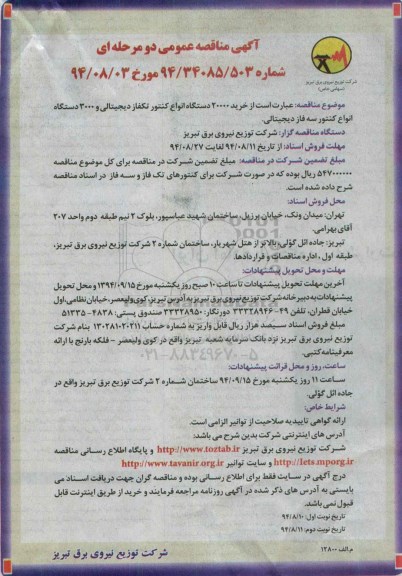 آگهی مناقصه عمومی دو مرحله ای
شماره ۹۴/۳۴۰۸۵/۵۰۳ مورخ ۹۴/۰۸/۰۳
شرکت توزیع نیروی برق تبریز
(سهامی خاص)
موضوع مناقصه: عبارت است از خرید ۲۰۰۰۰ دستگاه انواع کنتور تکفاز دیجیتالی و ۳۰۰۰ دستگاه
انواع کنتور سه فاز دیجیتالی.
دستگاه مناقصه گزار: شرکت توزیع نیروی برق تبریز
مهلت فروش اسناد: از تاریخ ۹۴/۰۸/۱۱ لغایت ۹۴/۰۸/۲۷
مبلغ تضمین شرکت در مناقصه: مبلغ تضمین شرکت در مناقصه برای کل موضوع مناقصه
۵۴۷۰۰۰۰۰۰ ریال بوده که در صورت شرکت برای کنتورهای تک فاز و سه فاز در اسناد مناقصه
شرح داده شده است.
محل فروش اسناد:
تهران: میدان ونک، خیابان برزیل، ساختمان شهید عباسپور، بلوک ۲ نیم طبقه دوم واحد ۲۰۷
آقای بهرامی.
تبریز: جاده ائل گؤلی، بالاتر از هتل شهریار، ساختمان شماره ۲ شرکت توزیع نیروی برق تبریز،
طبقه اول، اداره مناقصات و قراردادها.
مهلت و محل تحویل پیشنهادات:
آخرین مهلت تحویل پیشنهادات تا ساعت ۱۰ صبح روز یکشنبه مورخ ۱۳۹۴/۰۹/۱۵ و محل تحویل
پیشنهادات به دبیرخانه شرکت توزیع نیروی برق تبریز به آدرس تبریز، کوی ولیعصر، خیابان نظامی، اول
خیابان قطران، تلفن ۴۹-۳۳۳۲۸۹۴۶ دورنگار: ۳۳۳۲۸۹۵۰ صندوق پستی: ۴۸۳۸-۵۱۳۳۵
مبلغ فروش اسناد سیصد هزار ریال قابل واریز به شماره حساب ۱۳۰۲۸۱۰۲۰۲۱۱ بنام شرکت
توزیع نیروی برق تبریز نزد بانک سرمایه شعبه تبریز واقع در کوی ولیعصر - فلکه بارنج با ارائه
معرفینامه کتبی.
ساعت، روز و محل قرائت پیشنهادات:
ساعت ۱۱ روز یکشنبه مورخ ۹۴/۰۹/۱۵ ساختمان شماره ۲ شرکت توزیع برق تبریز واقع در
جاده ائل گؤلی.
شرایط خاص:
ارائه گواهی تاییدیه صلاحیت از توانیر الزامی است.
آدرس های اینترنتی شرکت بدین شرح می باشد:
شرکت توزیع نیروی برق تبریز http://www.toztab.ir و پایگاه اطلاع رسانی مناقصه
http://iets.mporg.ir و سایت توانیر http://www.tavanir.org.ir
درج آگهی در سایت فقط برای اطلاع رسانی بوده و مناقصه گران جهت دریافت اسناد می
بایستی به آدرس های ذکر شده در آگهی روزنامه مراجعه فرمایند و خرید از طریق اینترنت قابل
قبول نمی باشد.
تاریخ نوبت اول: ۹۴/۸/۱۰
تاریخ نوبت دوم: ۹۴/۸/۱۱
م.الف ۱۲۸۰۰
شرکت توزیع نیروی برق تبریز
۰۲۱-۸۸۳۴۹۶۷۰-۵